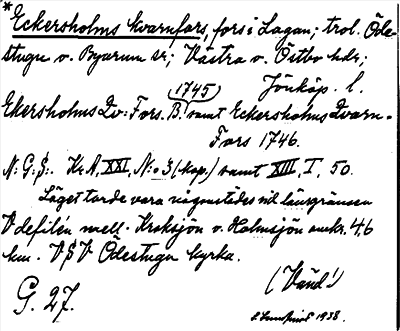 *Eckersholms kvarnfors, fors i Lagan; trol. Öde-
stugu o. Byarum sr; Västra o. Östbo hdr;
Jönköp. l.
(1745)
Ekersholms Qv: Fors. B. samt Eckersholms Qvarn-
Fors 1746.
N: G: S:. Kr. A. XXI, N:o 3 (kop.) samt XIII, I, 50.
Läget torde vara någonstädes vid länsgränsen
V defilén mell. Kroksjön o. Holmsjön omkr. 4,6
km. VSV Ödestugu kyrka.
(Vänd!)
G. 27.
1938.